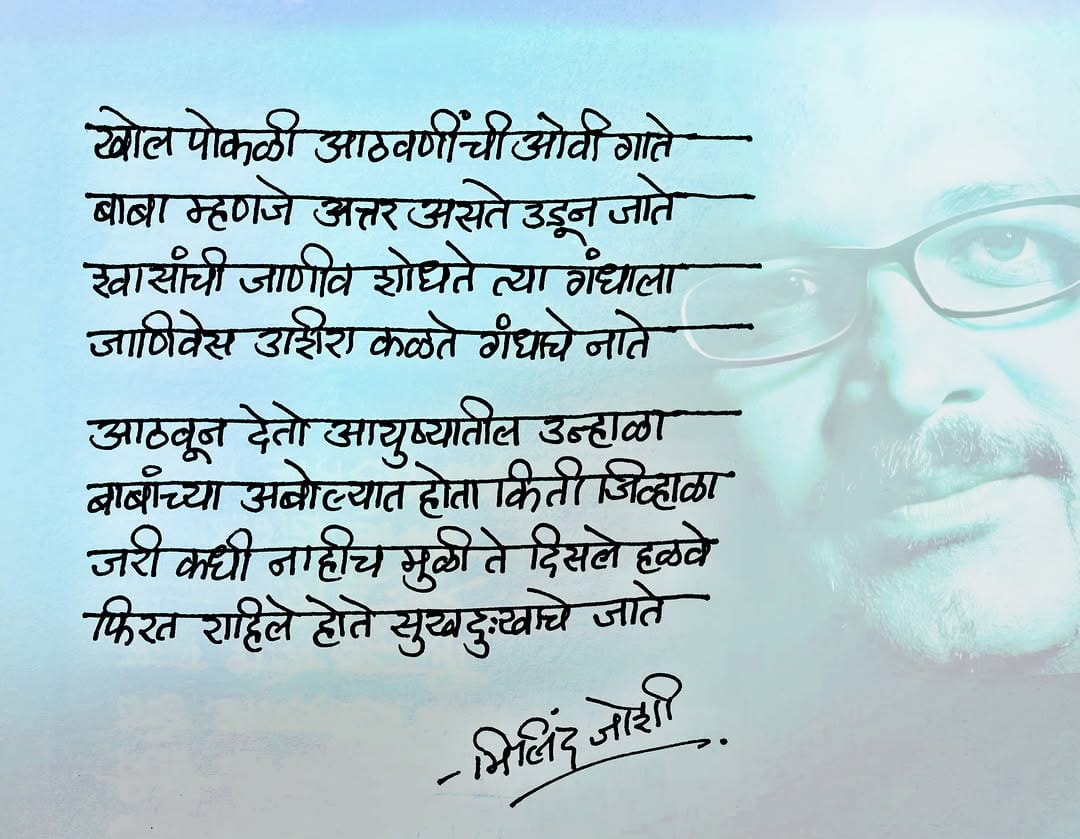 खोल पोकळी आठवणींची ओवी गाते
बाबा म्हणजे अत्तर असते उडून जाते
श्वासांची जाणीव शोधते त्या गंधाला
जाणिवेस उशीरा कळते गंधाचे नाते
आठवून देतो आयुष्यातील उन्हाळा
बाबांच्या अबोल्यात होता किती जिव्हाळा
जरी कधी नाहीच मुळी ते दिसले हळवे
फिरत राहिले होते सुखदुःखाचे जाते
- मिलिंद जोशी.